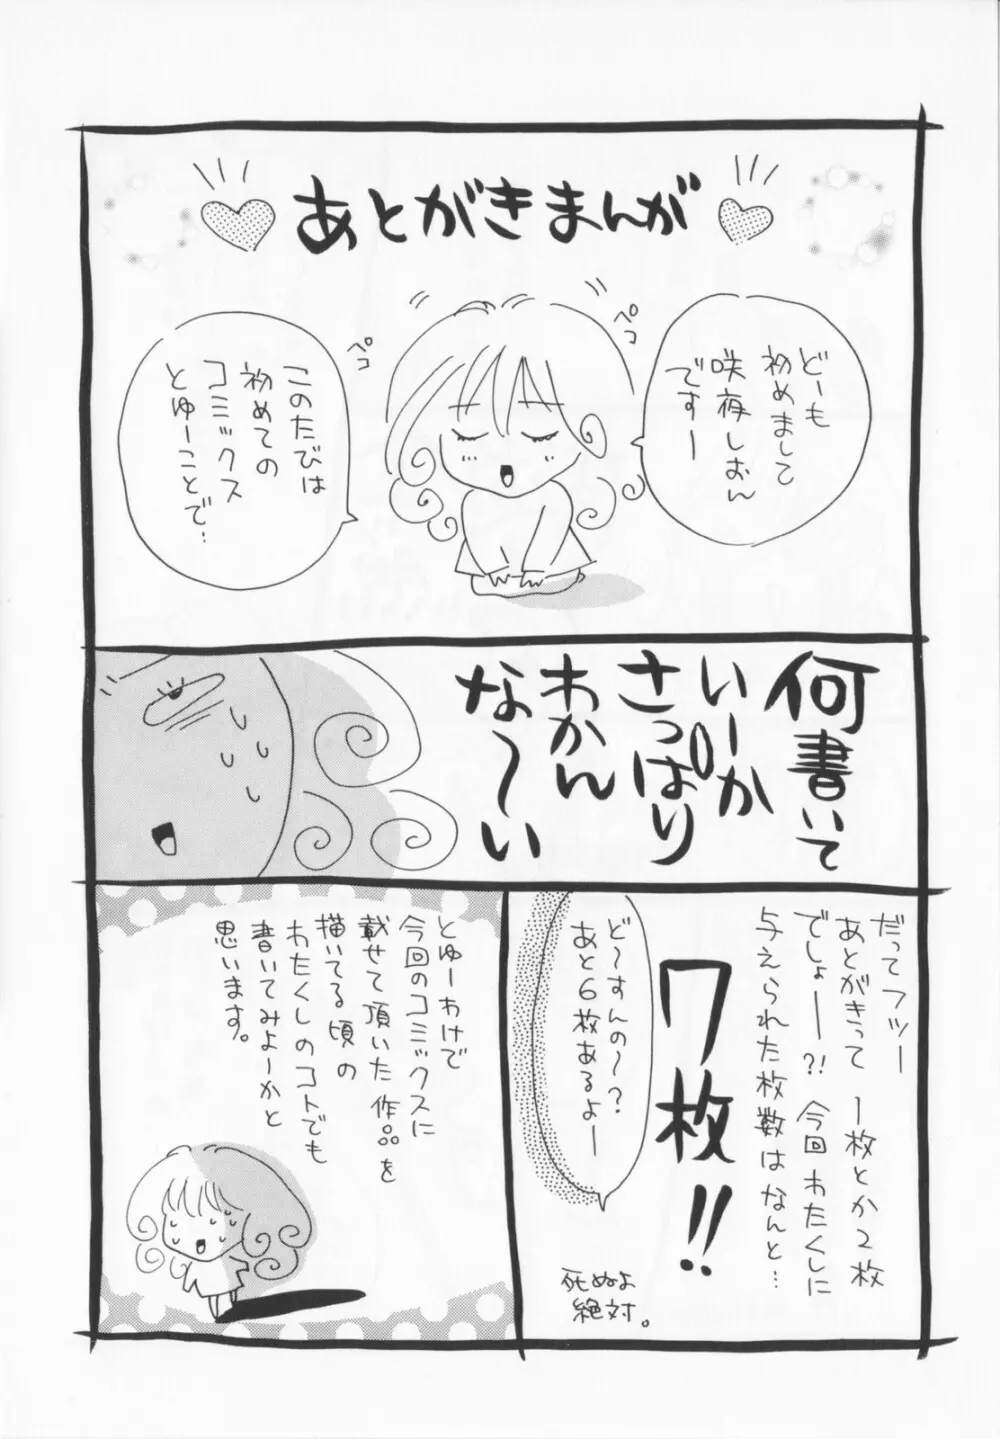 あとがきまんが
どーも
初めまして
咲夜しおん
ですー
ペコ
ペコ
このたびは
初めての
コミックス
とゆーことで…
何書いて
いーか
さっぱり
わかん
な～い
だってフツー
あとがきって1枚とか2枚
でしょー?!今回わたくしに
与えられた枚数はなんと…
7枚!!
ど～すんの～?
あと6枚あるよー
死ぬよ
絶対。
とゆーわけで
今回のコミックスに
載せて頂いた作品を
描いてる頃の
わたくしのコトでも
書いてみよーかと
思います。